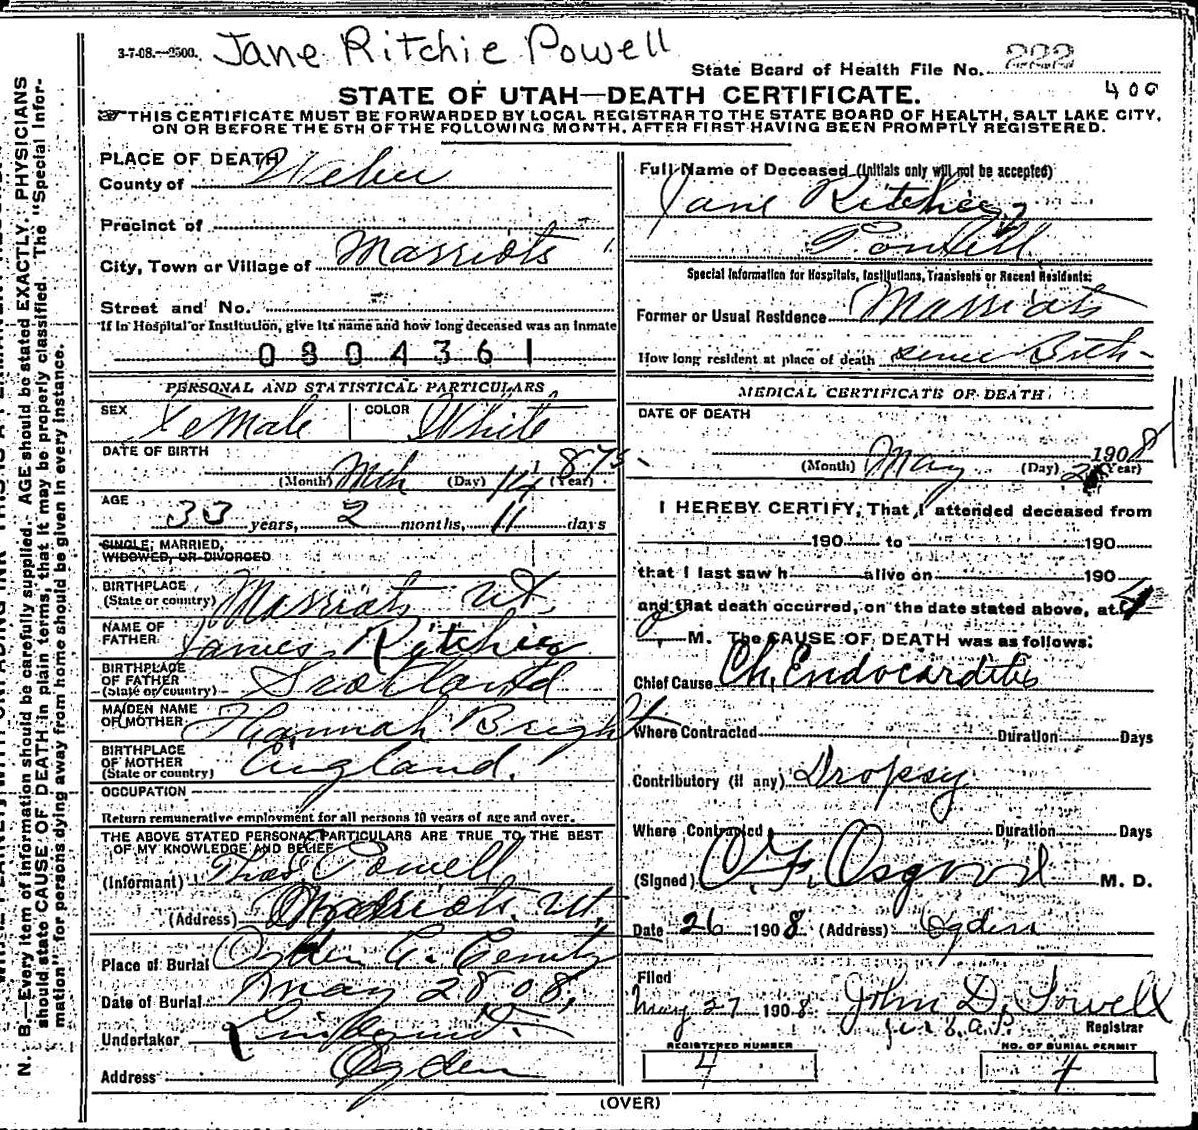 3-7-08.—2500. Jane Ritchie Powell
State Board of Health File No. 222
400
STATE OF UTAH—DEATH CERTIFICATE.
THIS CERTIFICATE MUST BE FORWARDED BY LOCAL REGISTRAR TO THE STATE BOARD OF HEALTH, SALT LAKE CITY,
ON OR BEFORE THE 5TH OF THE FOLLOWING MONTH, AFTER FIRST HAVING BEEN PROMPTLY REGISTERED.
PLACE OF DEATH
County of Weber
Precinct of
City, Town or Village of Marriots
Street and No.
If in Hospital or Institution, give its name and how long deceased was an inmate
0804361
PERSONAL AND STATISTICAL PARTICULARS
SEX Female COLOR White
DATE OF BIRTH
(Month) Mch (Day) 14 (Year) 875
AGE
33 years, 2 months, 11 days
SINGLE, MARRIED,
WIDOWED, OR DIVORCED
BIRTHPLACE
(State or country) Marriots Ut.
NAME OF
FATHER James Ritchie
BIRTHPLACE
OF FATHER
(State or country) Scotland
MAIDEN NAME
OF MOTHER Hannah Bright
BIRTHPLACE
OF MOTHER
(State or country) England.
OCCUPATION
Return remunerative employment for all persons 10 years of age and over.
THE ABOVE STATED PERSONAL PARTICULARS ARE TRUE TO THE BEST
OF MY KNOWLEDGE AND BELIEF
(Informant) Thos Powell
(Address) Marriots, Ut.
Place of Burial Ogden C. Cemty
Date of Burial May 28, 08.
Undertaker
Address Ogden
Full Name of Deceased (Initials only will not be accepted)
Jane Ritchie
Powell
Special Information for Hospitals, Institutions, Transients or Recent Residents:
Former or Usual Residence Marriots
How long resident at place of death since Birth
MEDICAL CERTIFICATE OF DEATH
DATE OF DEATH
1908
(Month) May (Day) (Year)
I HEREBY CERTIFY, That I attended deceased from
190 to 190
that I last saw h alive on 190
and that death occurred, on the date stated above, at 4
M. The CAUSE OF DEATH was as follows:
Chief Cause Ch. Endocarditis
Where Contracted Duration Days
Contributory (if any) Dropsy
Where Contracted Duration Days
(Signed) O. F. Osgood M. D.
Date 26 1908 (Address) Ogden
Filed
May 27 1908 John D. Powell
Registrar
REGISTERED NUMBER
4
NO. OF BURIAL PERMIT
4
(OVER)
N. B.—Every item of information should be carefully supplied. AGE should be stated EXACTLY. PHYSICIANS
should state CAUSE OF DEATH in plain terms, that it may be properly classified. The "Special Infor-
mation" for persons dying away from home should be given in every instance.